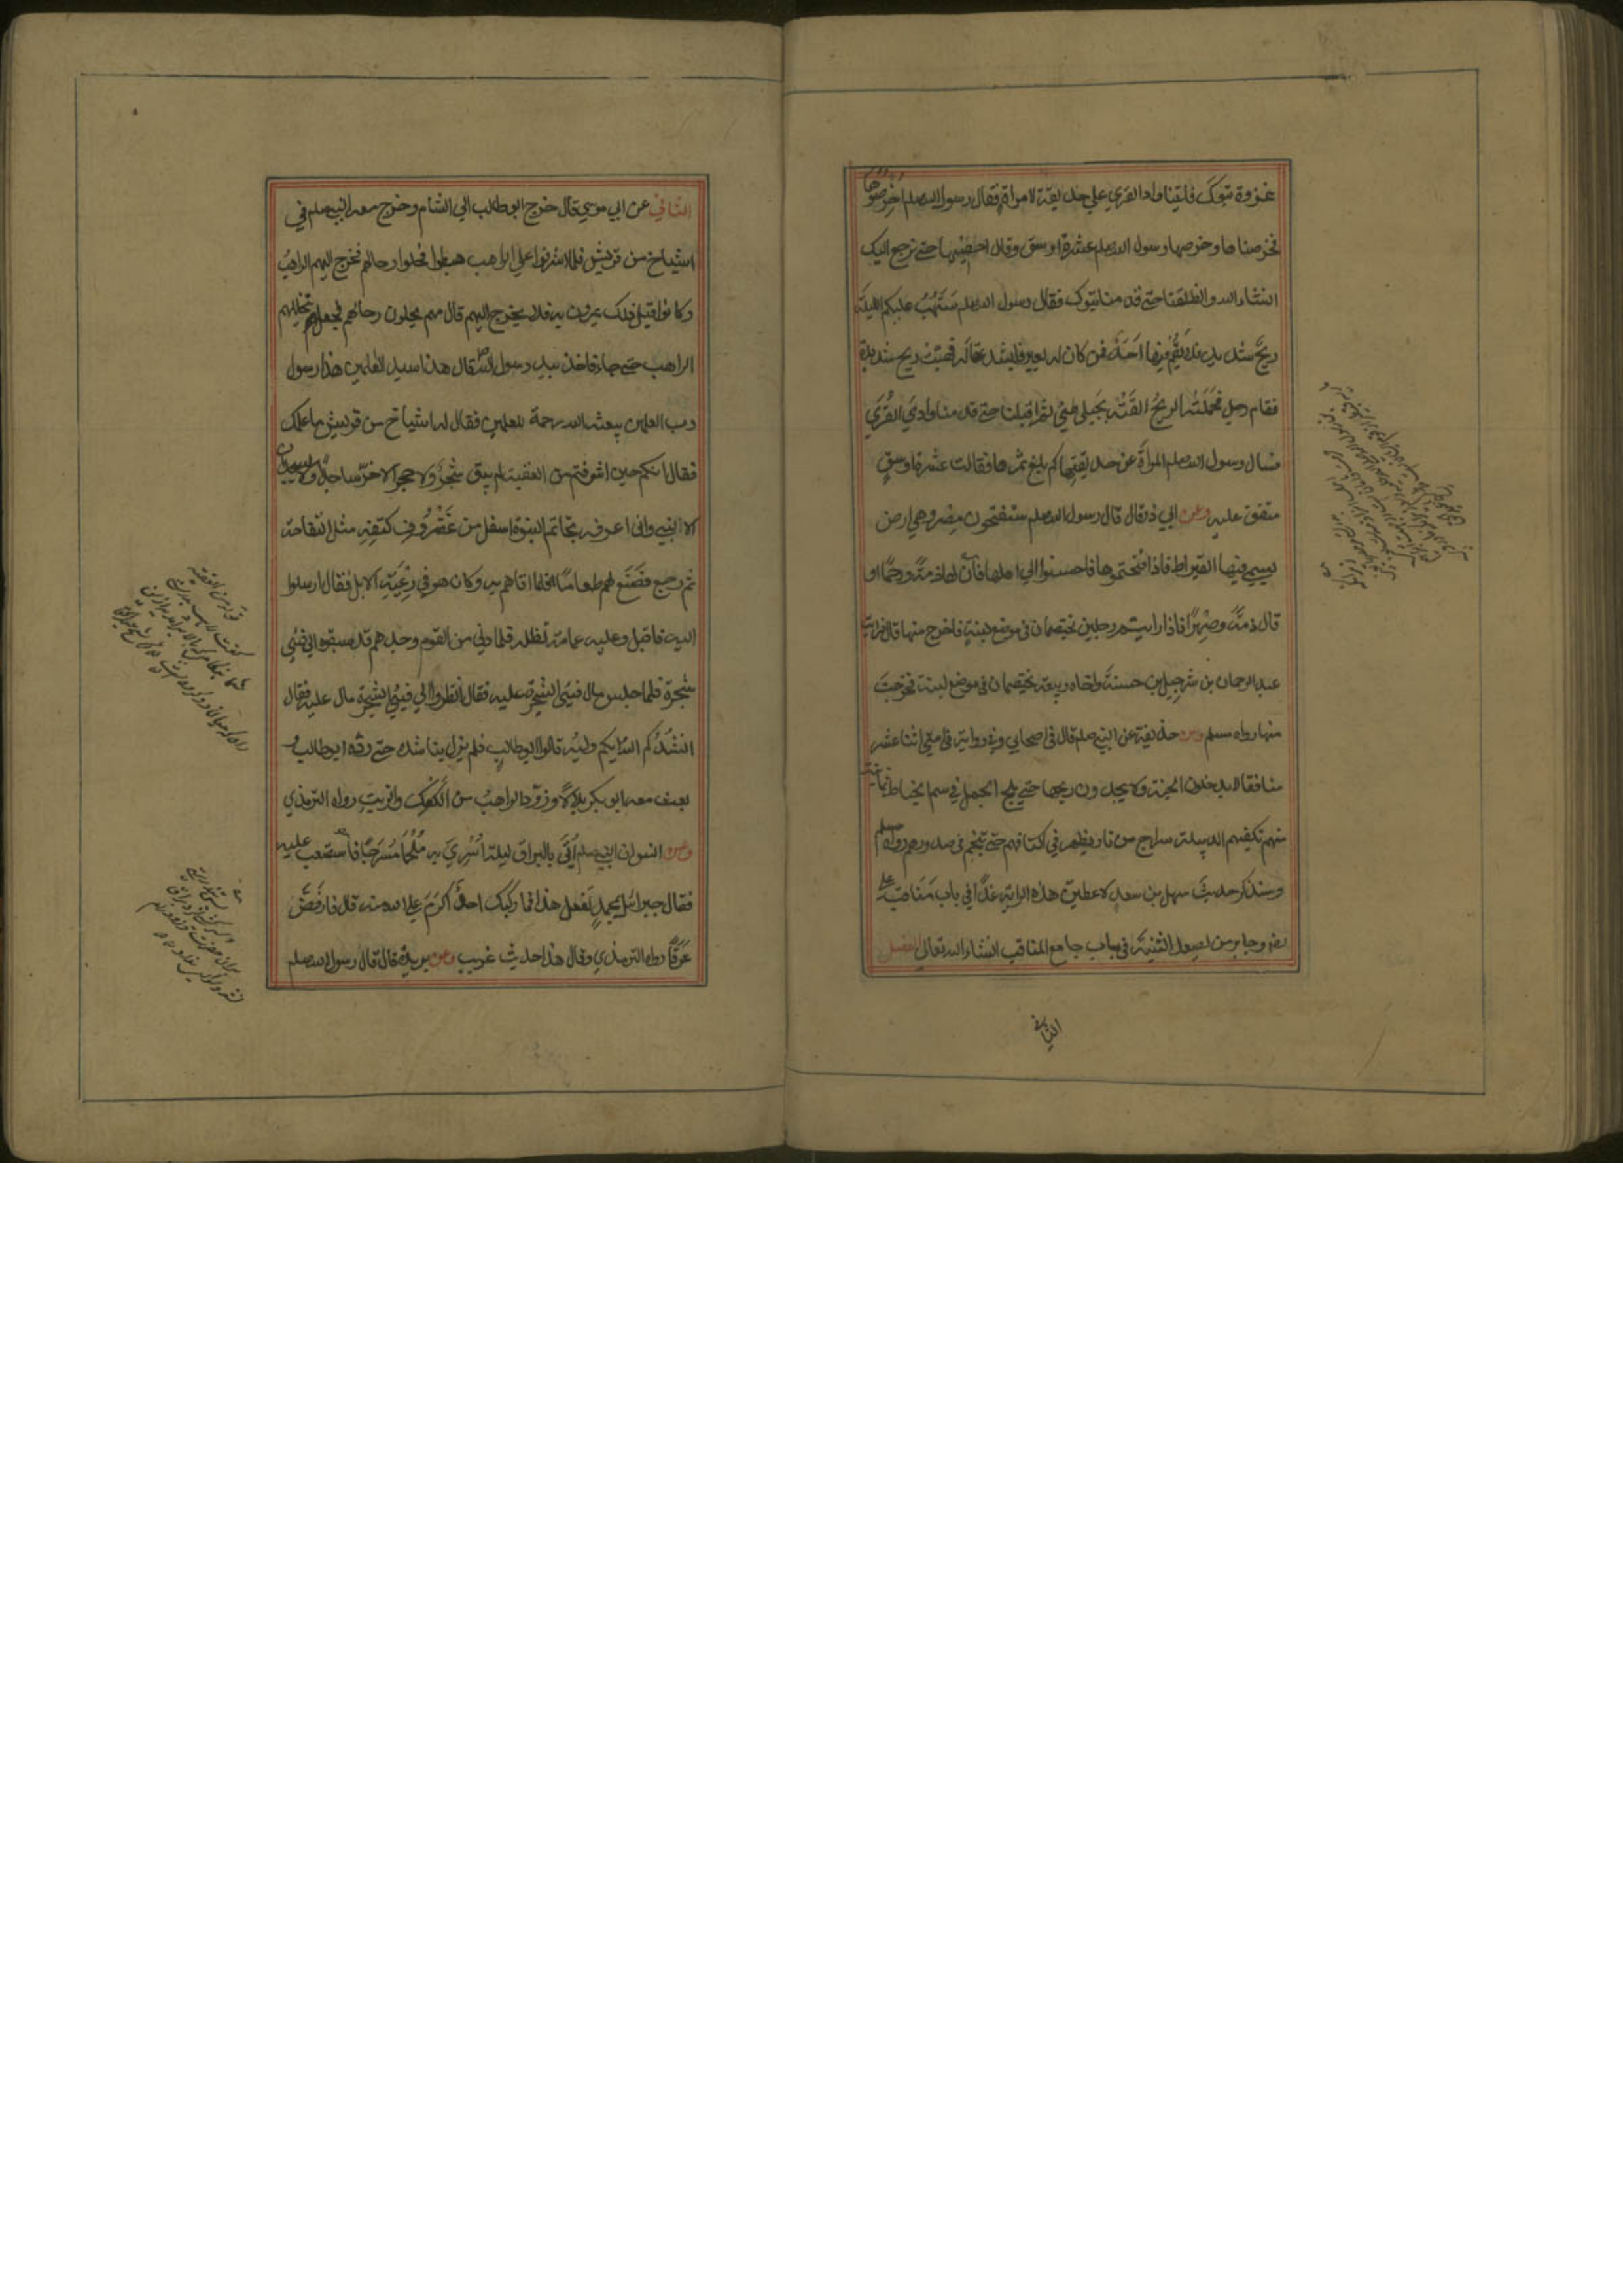 غزوة تبوك فلقينا وادا القري علي حديقة لامراة فقال رسول الله صلم اخرصوها
فخرصناها وخرصها رسول الله صلم عشرة اوسق وقال احصيها حتي نرجع اليك
انشاء الله وانطلقنا حتي قدمنا تبوك فقال رسول الله صلم ستهب عليكم الليلة
ريح شديدة فلا يقم فيها احد فمن كان له بعير فليشد عقاله فهبت ريح شديدة
فقام رجل فحملته الريح القته بجبلي طيئ ثم اقبلنا حتي قدمنا وادي القري
فسال رسول الله صلم المراة عن حديقتها كم بلغ ثمرها فقالت عشرة اوسق
متفق عليه وعن ابي ذر قال قال رسول الله صلم ستفتحون مصر وهي ارض
يسمي فيها القيراط فاذا فتحتموها فاحسنوا الي اهلها فان لها ذمة ورحما او
قال ذمة وصهرا فاذا رايتم رجلين يختصمان في موضع لبنة فاخرج منها قال فرايت
عبد الرحمان بن شرحبيل بن حسنة واخاه ربيعة يختصمان في موضع لبنة فخرجت
منها رواه مسلم وعن حذيفة عن النبي صلم قال في اصحابي وفي رواية في امتي اثنا عشر
منافقا لا يدخلون الجنة ولا يجدون ريحها حتي يلج الجمل في سم الخياط ثمانية
منهم تكفيهم الدبيلة سراج من نار يظهر في اكتافهم حتي تنجم في صدورهم رواه مسلم
وسنذكر حديث سهل بن سعد لاعطين هذه الراية غدا في باب مناقب علي
رضـ وجابر من يصعد الثنية في باب جامع المناقب انشاء الله تعالي الفصل
الثاني
الثاني عن ابي موسي قال خرج ابو طالب الي الشام وخرج معه النبي صلم في
اشياخ من قريش فلما اشرفوا علي الراهب هبطوا فحلوا رحالهم فخرج اليهم الراهب
وكانوا قبل ذلك يمرون به فلا يخرج اليهم قال فهم يحلون رحالهم فجعل يتخللهم
الراهب حتي جاء فاخذ بيد رسول الله صـ قال هذا سيد العلمين هذا رسول
رب العلمين يبعثه الله رحمة للعلمين فقال له اشياخ من قريش ما علمك
فقال انكم حين اشرفتم من العقبة لم يبق شجر ولا حجر الا خر ساجدا ولا يسجدان
الا لنبي واني اعرفه بخاتم النبوة اسفل من غضروف كتفه مثل التفاحة
ثم رجع فصنع لهم طعاما فلما اتاهم به وكان هو في رعية الابل فقال ارسلوا
اليه فاقبل وعليه عمامة تظله فلما دني من القوم وجدهم قد سبقوه الي فيئ
شجرة فلما جلس مال فيئ الشجرة عليه فقال انظروا الي فيئ الشجرة مال عليه فقال
انشدكم الله ايكم وليه قالوا ابو طالب فلم يزل يناشده حتي رده ابو طالب و
بعث معه ابو بكر بلالا وزوده الراهب من الكعك والزيت رواه الترمذي
وعن انس ان النبي صلم اتي بالبراق ليلة اسري به ملجما مسرجا فاستصعب عليه
فقال جبرائيل ابمحمد تفعل هذا فما ركبك احد اكرم علي الله منه قال فارفض
عرقا رواه الترمذي وقال هذا حديث غريب وعن بريدة قال قال رسول الله صلم